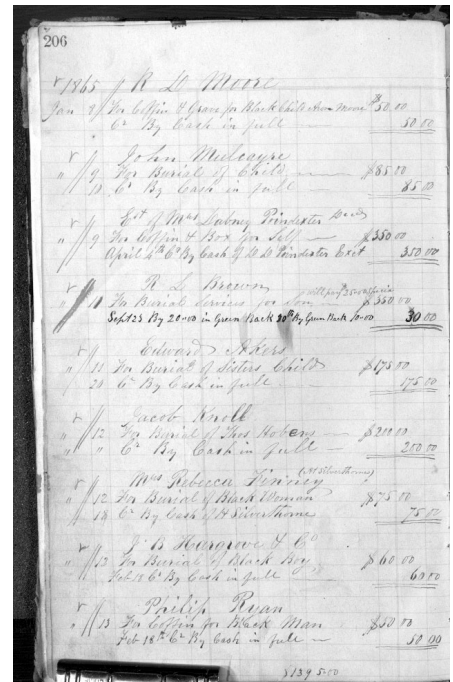 206
1865 R D Moore
Jan 8 For Coffin & Grave for Black Child $50.00
Cr By Cash in full 50 00
John Mulcayre
" 9 For Burial of Child $85 00
10 Cr By Cash in full 85 00
Est of Mrs Dabney Poindexter Decd
" 9 For Coffin & Box for Self $350 00
April 4th Cr By Cash of Poindexter Exct 350 00
R L Brown
" 11 For Burial Services for Son $350 00
Sept 23 By 20.00 in Green Back 30th By Green Back 10.00 30 00
Edward Akers
" 11 For Burial of Sisters Child $175 00
20 Cr By Cash in full 175 00
Jacob Knoll
" 12 For Burial of Thos Hobens $200 00
" " Cr By Cash in full 200 00
(H Silverthorne)
Mrs Rebecca
" 12 For Burial of Black Woman $75 00
18 Cr By Cash of H Silverthorne 75 00
J B Hargrove & Co
" 13 For Burial of Black Boy $60 00
Feb 18 Cr By Cash in full 60 00
Philip Ryan
" 13 For Coffin for Black Man $50 00
Feb 18th Cr By Cash in full 50 00
$1395.00